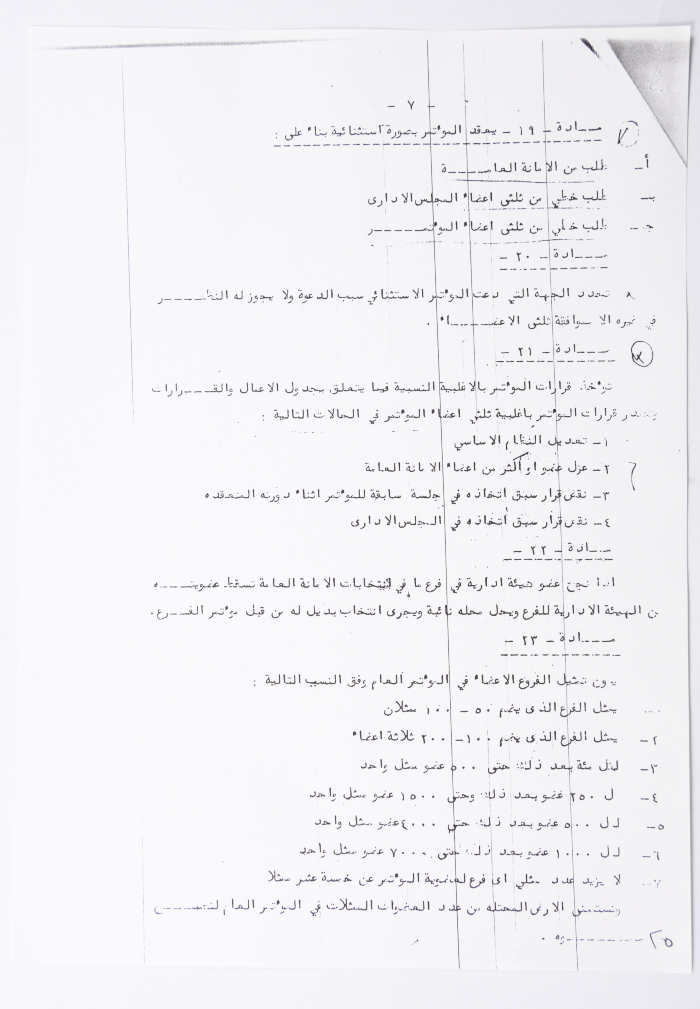 - ٧ -
مادة - ١٩ - يعقد المؤتمر بصورة استثنائية بناء على :
أ- طلب من الامانة العامة
ب- طلب خطي من ثلثي اعضاء المجلس الادارى
ج- طلب خطي من ثلثي اعضاء المؤتمر
مادة - ٢٠ -
تحدد الجهة التي دعت المؤتمر الاستثنائي سبب الدعوة ولا يجوز له النظر
في غيره الا بموافقة ثلثي الاعضاء .
مادة - ٢١ -
تؤخذ قرارات المؤتمر بالاغلبية النسبية فيما يتعلق بجدول الاعمال والقرارات
وتصدر قرارات المؤتمر باغلبية ثلثي اعضاء المؤتمر في الحالات التالية :
١- تعديل النظام الاساسي
٢- عزل عضو او أكثر من اعضاء الامانة العامة
٣- نقض قرار سبق اتخاذه في جلسة سابقة للمؤتمر اثناء دورته المنعقده
٤- نقض قرار سبق أتخاذه في المجلس الادارى
مادة - ٢٢ -
اذا نجح عضو هيئة ادارية في فرع ما في انتخابات الامانة العامة تسقط عضويته
من الهيئة الادارية للفرع ويحل محله نائبه ويجرى انتخاب بديل له من قبل مؤتمر الفرع .
مادة - ٢٣ -
يكون تمثيل الفروع الاعضاء في المؤتمر العام وفق النسب التالية :
يمثل الفرع الذى يضم ٥٠ - ١٠٠ ممثلان
٢- يمثل الفرع الذى يضم ١٠٠- ٢٠٠ ثلاثة اعضاء
٣- لكل مئة بعد ذلك حتى ٥٠٠ عضو ممثل واحد
٤- ل ٢٥٠ عضو بعد ذلك وحتى ١٥٠٠ عضو ممثل واحد
٥- لكل ٥٠٠ عضو بعد ذلك حتى ٤٠٠٠ عضو ممثل واحد
٦- لكل ١٠٠٠ عضو بعد ذلك حتى ٧٠٠٠ عضو ممثل واحد
٧- لا يزيد عدد ممثلي اى فرع لعضوية المؤتمر عن خمسة عشر ممثلا
وتستثنى الارض المحتله من عدد العضوات الممثلات في المؤتمر العام